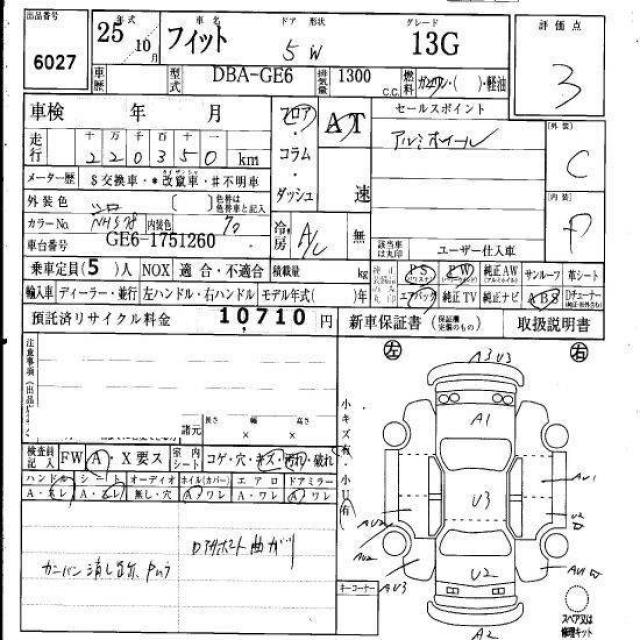 出品番号 年式 車名 ドア 形状 グレード 評価点
6027 25 10月 フィット 5W 13G 3
車歴 型式 DBA-GE6 排気量 1300 C.C. 燃料 ガソリン・( )・軽油
車検 年 月 フロア AT セールスポイント
アルミホイール 外装 C
走行 十 万 千 百 十 一
220350 km コラム
メーター歴 $交換車・*改竄車・#不明車 ダッシュ 速 内装
外装色 シロ ( ) 色替は色替車と記入
カラーNo. NH578 内装色 冷房 A/C 無
車台番号 GE6-1751260 該当車は丸印 ユーザー仕入車
乗車定員(5)人 NOX 適合・不適合 積載量 kg PS PW 純正AW サンルーフ 革シート
輸入車 ディーラー・並行 左ハンドル・右ハンドル モデル年式( )年 エアバック 純正TV 純正ナビ ABS Dチューナー
預託済リサイクル料金 10,710円 新車保証書 取扱説明書
左 右
A3 U3
注意事項
A1
諸元 長さ 幅 高さ
× ×
小キズ有・小U有
検査員記入 FW A・X要ス 室内シート コゲ・穴・キズ・汚れ・破れ
ハンドル シート オーディオ ホイル(カバー) エアロ ドアミラー
A・スレ A・スレ 無し・穴 A・ワレ A・ワレ A・ワレ
AU1
U3
U2
AU2
AU2
AU3
U2
AU1
カンバン消し跡
曲がり
キーコーナー
A2
スペア又は
修理キット